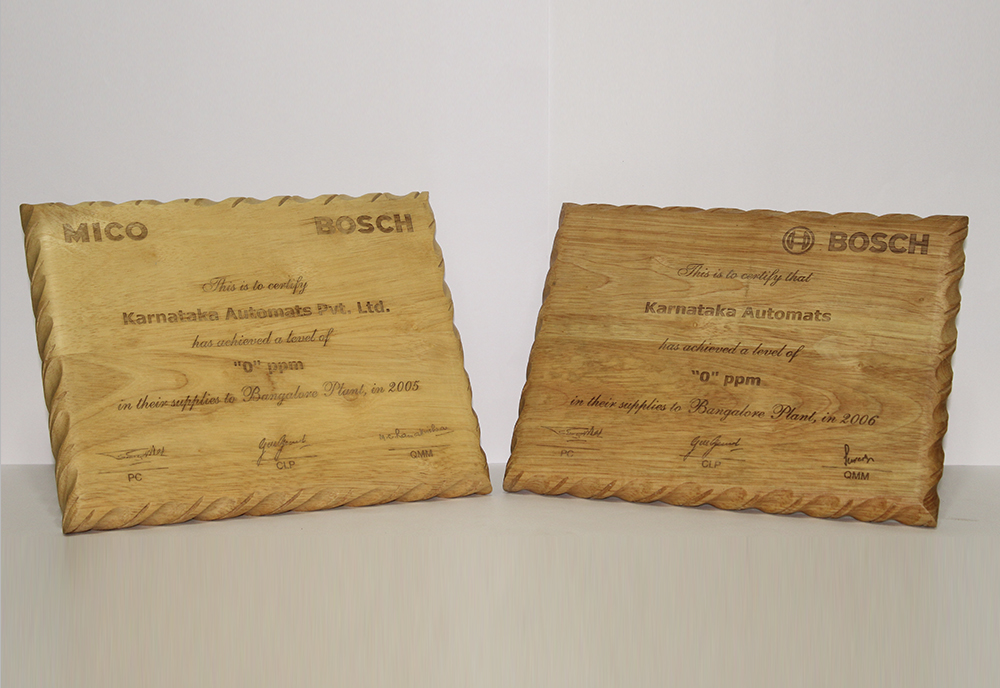 MICO BOSCH
This is to certify
Karnataka Automats Pvt. Ltd.
has achieved a level of
"0" ppm
in their supplies to Bangalore Plant, in 2005
PC CLP QMM
BOSCH
This is to certify that
Karnataka Automats
has achieved a level of
"0" ppm
in their supplies to Bangalore Plant, in 2006
PC CLP QMM